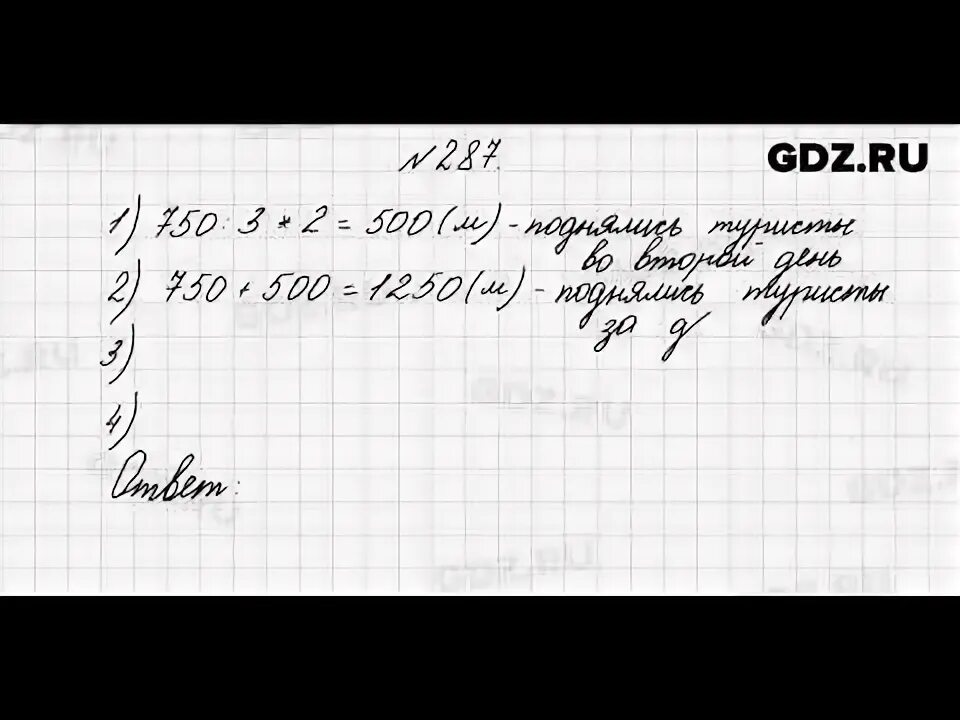 № 287.
GDZ.RU
1) 750 : 3 * 2 = 500 (м) - поднялись туристы
во второй день
2) 750 + 500 = 1250 (м) - поднялись туристы
за д
3)
4)
Ответ: